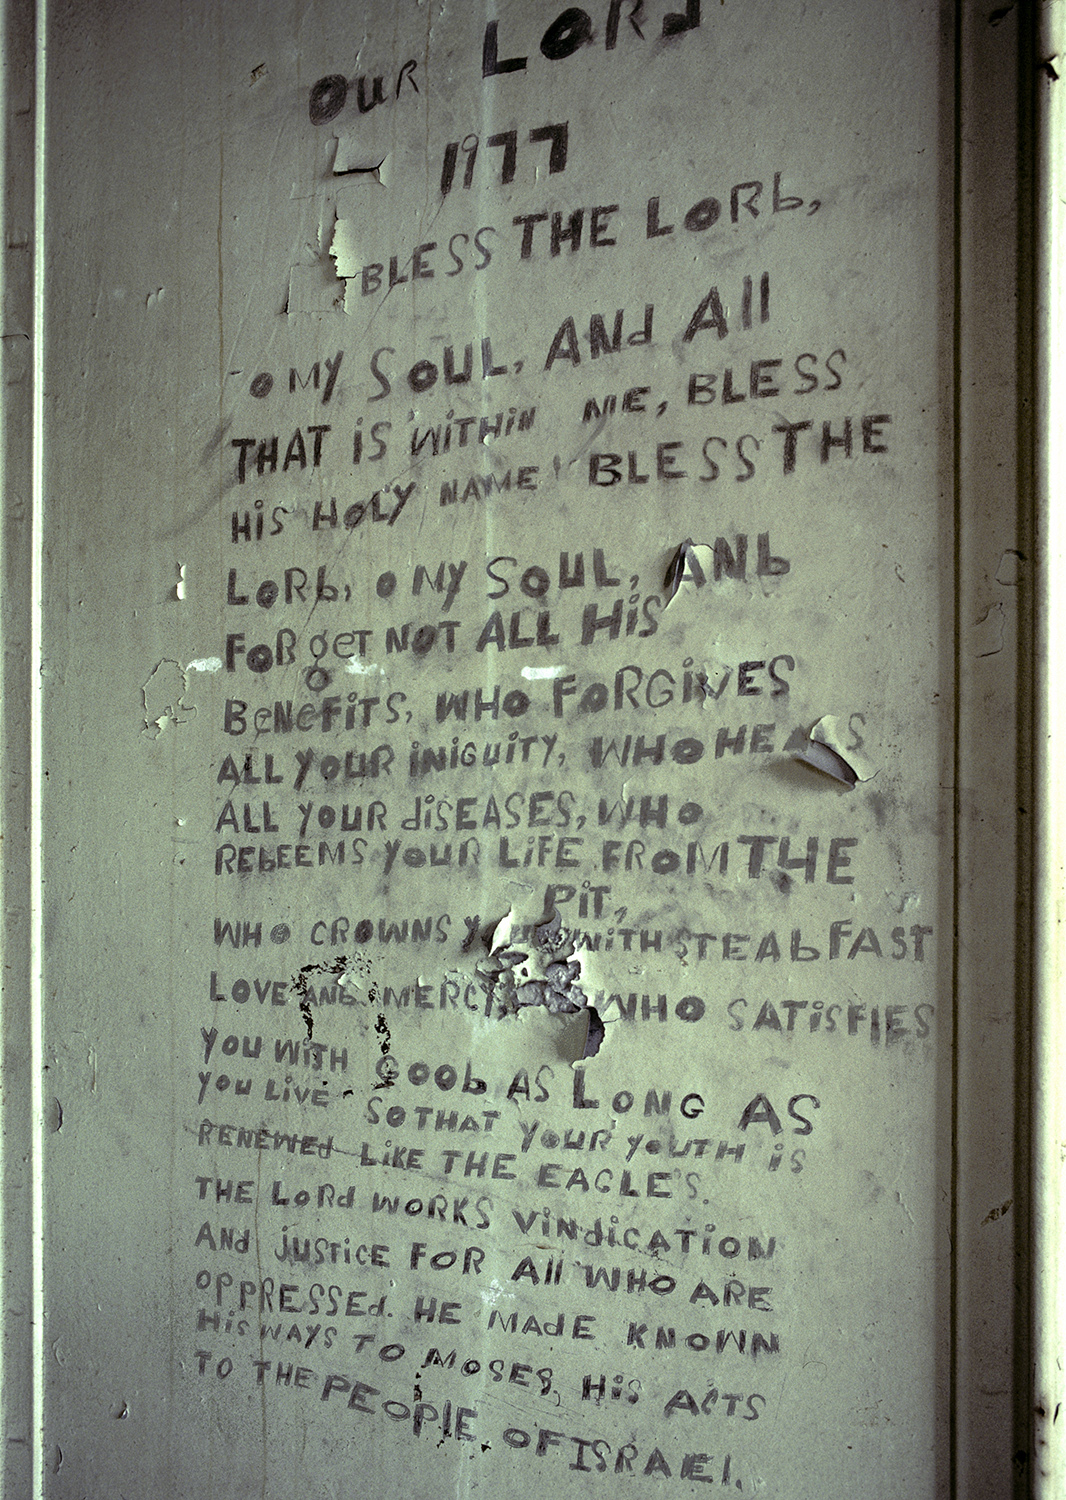 OUR LORd
1977
BLESS THE LORb,
O MY SOUL, ANd All
THAT iS WiTHiN ME, BLESS
HiS HOLY NAME! BLESS THE
LORb, O MY SOUL, ANb
FORgeT NOT ALL HiS
BeNeFiTS, WHO FORGiVES
ALL YOUR iNiGUiTY, WHO HEALS
ALL YOUR diSEASES, WHO
REbEEMS YOUR LiFE FROM THE
PiT,
WHO CROWNS YOU WiTH STEAbFAST
LOVE ANb MERCY, WHO SATiSFIES
YOU WiTH GOOb AS LONG AS
YOU LIVE SO THAT YOUR YOUTH iS
RENEWEd LiKE THE EAGLE'S.
THE LORd WORKS ViNdiCATiON
ANd jUSTiCE FOR All WHO ARE
OPPRESSEd. HE MAdE KNOWN
HiS WAYS TO MOSES, HiS ACTS
TO THE PEOPlE OF ISRAEl.